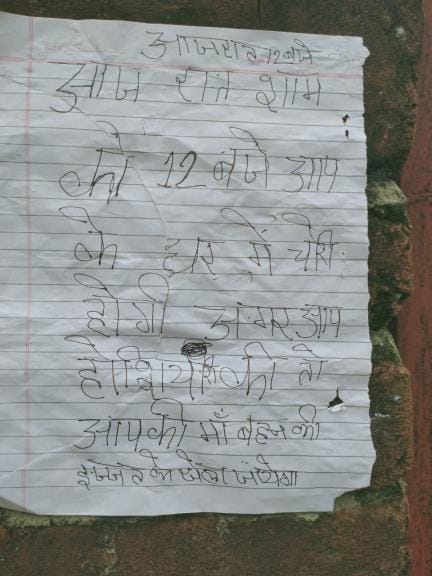 आजरात 12 बजे
आज रात शाम
को 12 बजे आप
के घर में चोरी
होगी अंगर आप
होशियारी की तो
आपकी माँ बहन की
इज्जत के खेला जायेगा